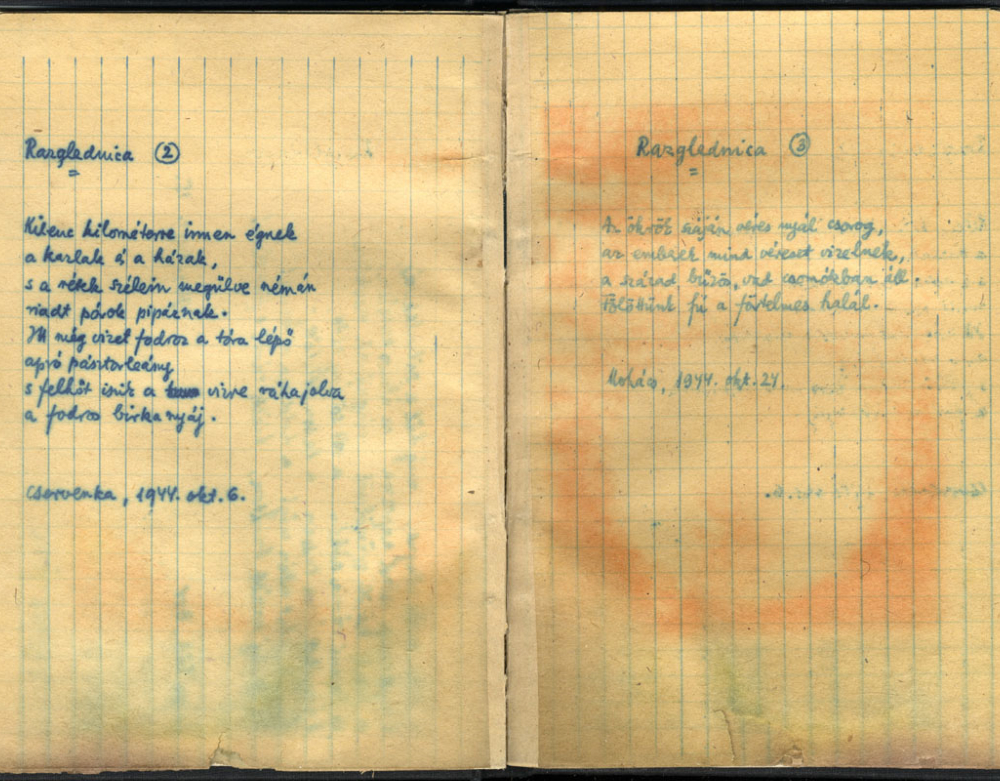 Razglednica ②
Kilenc kilométerre innen égnek
a kazlak és a házak,
s a rétek szélein megülve némán
riadt pórok pipáznak.
Itt még vizet fodroz a tóra lépő
apró pásztorleány
s felhőt iszik a vizre ráhajolva
a fodros birkanyáj.
Cservenka, 1944. okt. 6.
Razglednica ③
Az ökrök száján véres nyál csorog,
az emberek mind véreset vizelnek,
a század bűzös, vad csomókban áll.
Fölöttünk fú a förtelmes halál.
Mohács, 1944. okt. 24.